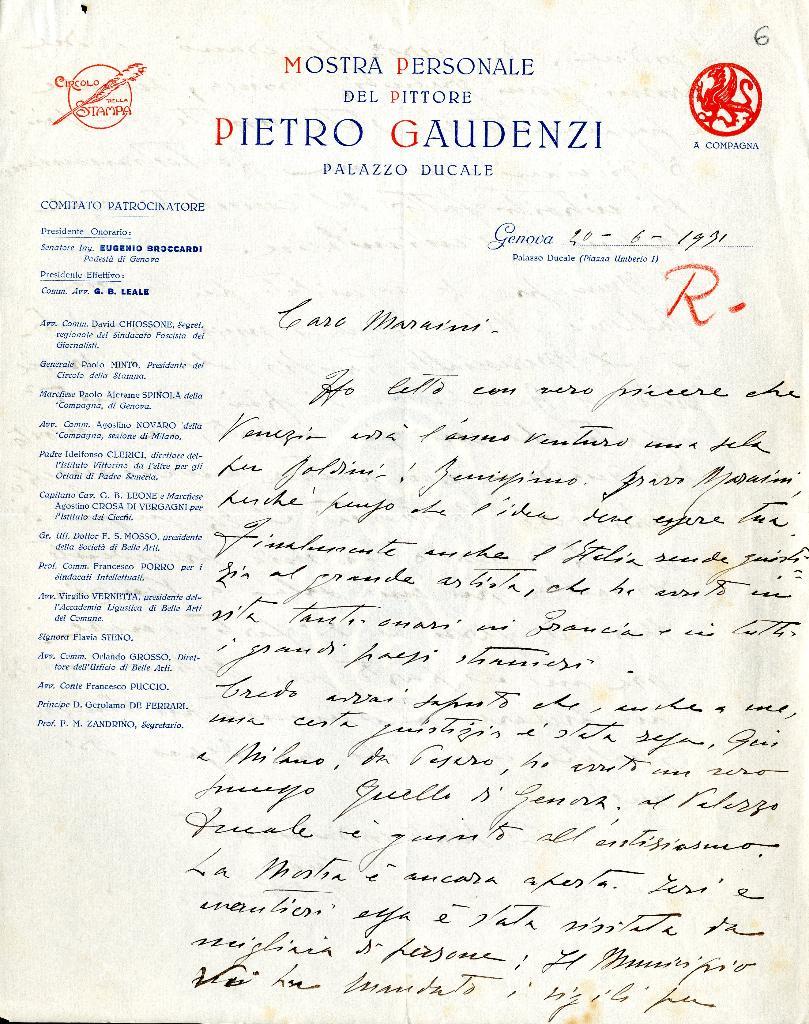 6
MOSTRA PERSONALE
DEL PITTORE
PIETRO GAUDENZI
PALAZZO DUCALE
CIRCOLO
DELLA
STAMPA
A COMPAGNA
COMITATO PATROCINATORE
Presidente Onorario:
Senatore Ing. EUGENIO BROCCARDI
Podestà di Genova
Presidente Effettivo:
Comm. Avv. G. B. LEALE
Avv. Comm. David CHIOSSONE, Segret.
regionale del Sindacato Fascista dei
Giornalisti.
Generale Paolo MINTO, Presidente del
Circolo della Stampa.
Marchese Paolo Alerame SPINOLA della
"Compagna, di Genova.
Avv. Comm. Agostino NOVARO della
"Compagna, sezione di Milano.
Padre Idelfonso CLERICI, direttore del-
l'Istituto Vittorino da Feltre per gli
Orfani di Padre Semeria.
Capitano Cav. G. B. LEONE e Marchese
Agostino CROSA DI VERGAGNI per
l'Istituto dei Ciechi.
Gr. Uff. Dottor F. S. MOSSO, presidente
della Società di Belle Arti.
Prof. Comm. Francesco PORRO per i
Sindacati Intellettuali.
Avv. Virgilio VERNETTA, presidente del-
l'Accademia Ligustica di Belle Arti
del Comune.
Signora Flavia STENO.
Avv. Comm. Orlando GROSSO, Diret-
tore dell'Ufficio di Belle Arti.
Avv. Conte Francesco PUCCIO.
Principe D. Gerolamo DE FERRARI.
Prof. P. M. ZANDRINO, Segretario.
Genova 20 - 6 - 1931
Palazzo Ducale (Piazza Umberto I)
R.
Caro Maraini -
Ho letto con vero piacere che
Venezia avrà l'anno venturo una sala
per Boldini! Benissimo. Bravo Maraini,
perché penso che l'idea deve essere tua.
Finalmente anche l'Italia rende giusti-
zia al grande artista, che ha avuto in
vita tanti onori in Francia e in tutti
i grandi paesi stranieri.
Credo avrai saputo che, anche a me,
una certa giustizia è stata resa. Qui
a Milano, da Pesaro, ho avuto un vero
successo. Quello di Genova, al Palazzo
Ducale è giunto all'entusiasmo.
La Mostra è ancora aperta. Ieri e
avantieri essa è stata visitata da
migliaia di persone; Il Municipio
ha mandato i vigili per